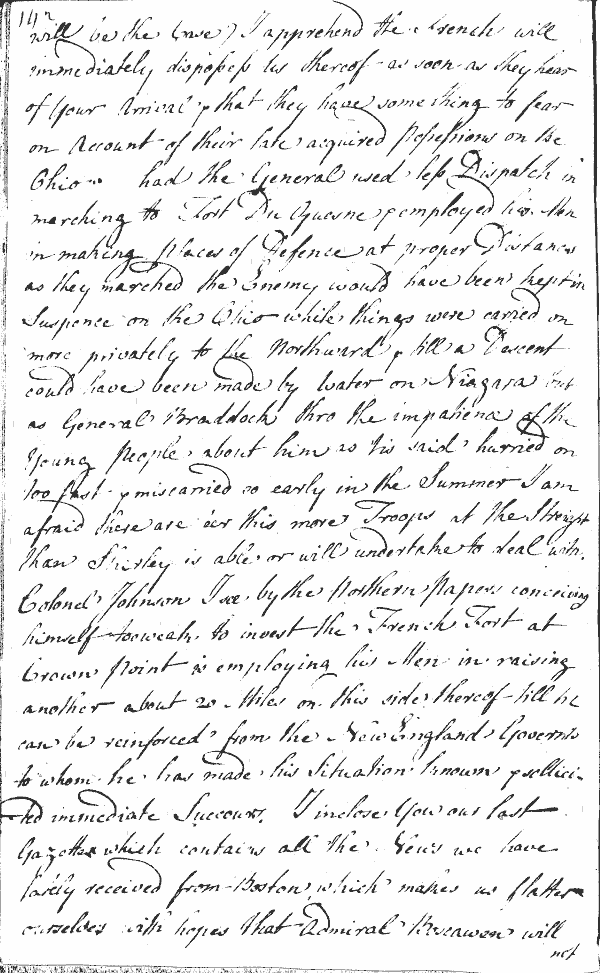 142
will be the Case) I apprehend the French will
immediately dispossess us thereof as soon as they hear
of Your Arrival, & that they have something to fear
on Account of their late acquired Possessions on the
Ohio. had the General used less Dispatch in
marching to Fort Du Quesne & employed his Men
in making Places of Defence at proper Distances
as they marched the Enemy would have been kept in
Suspence on the Ohio while things were carried on
more privately to the Northward, & till a Descent
could have been made by Water on Niagara but
as General Braddock thro the impatience of the
Young People about him as 'tis said hurried on
too fast & miscarried so early in the Summer I am
afraid there are ere this more Troops at the Streight
than Shirley is able or will undertake to deal with.
Colonel Johnson I see by the Northern Papers conceiving
himself too weak to invest the French Fort at
Crown Point is employing his Men in raising
another about 20 Miles on this side thereof till he
can be reinforced from the New England Governts
to whom he has made his Situation known & sollici-
ted immediate Succours. I inclose You our last
Gazette which contains all the News we have
lately received from Boston which makes us flatter
ourselves with hopes that Admiral Boscawen will
not